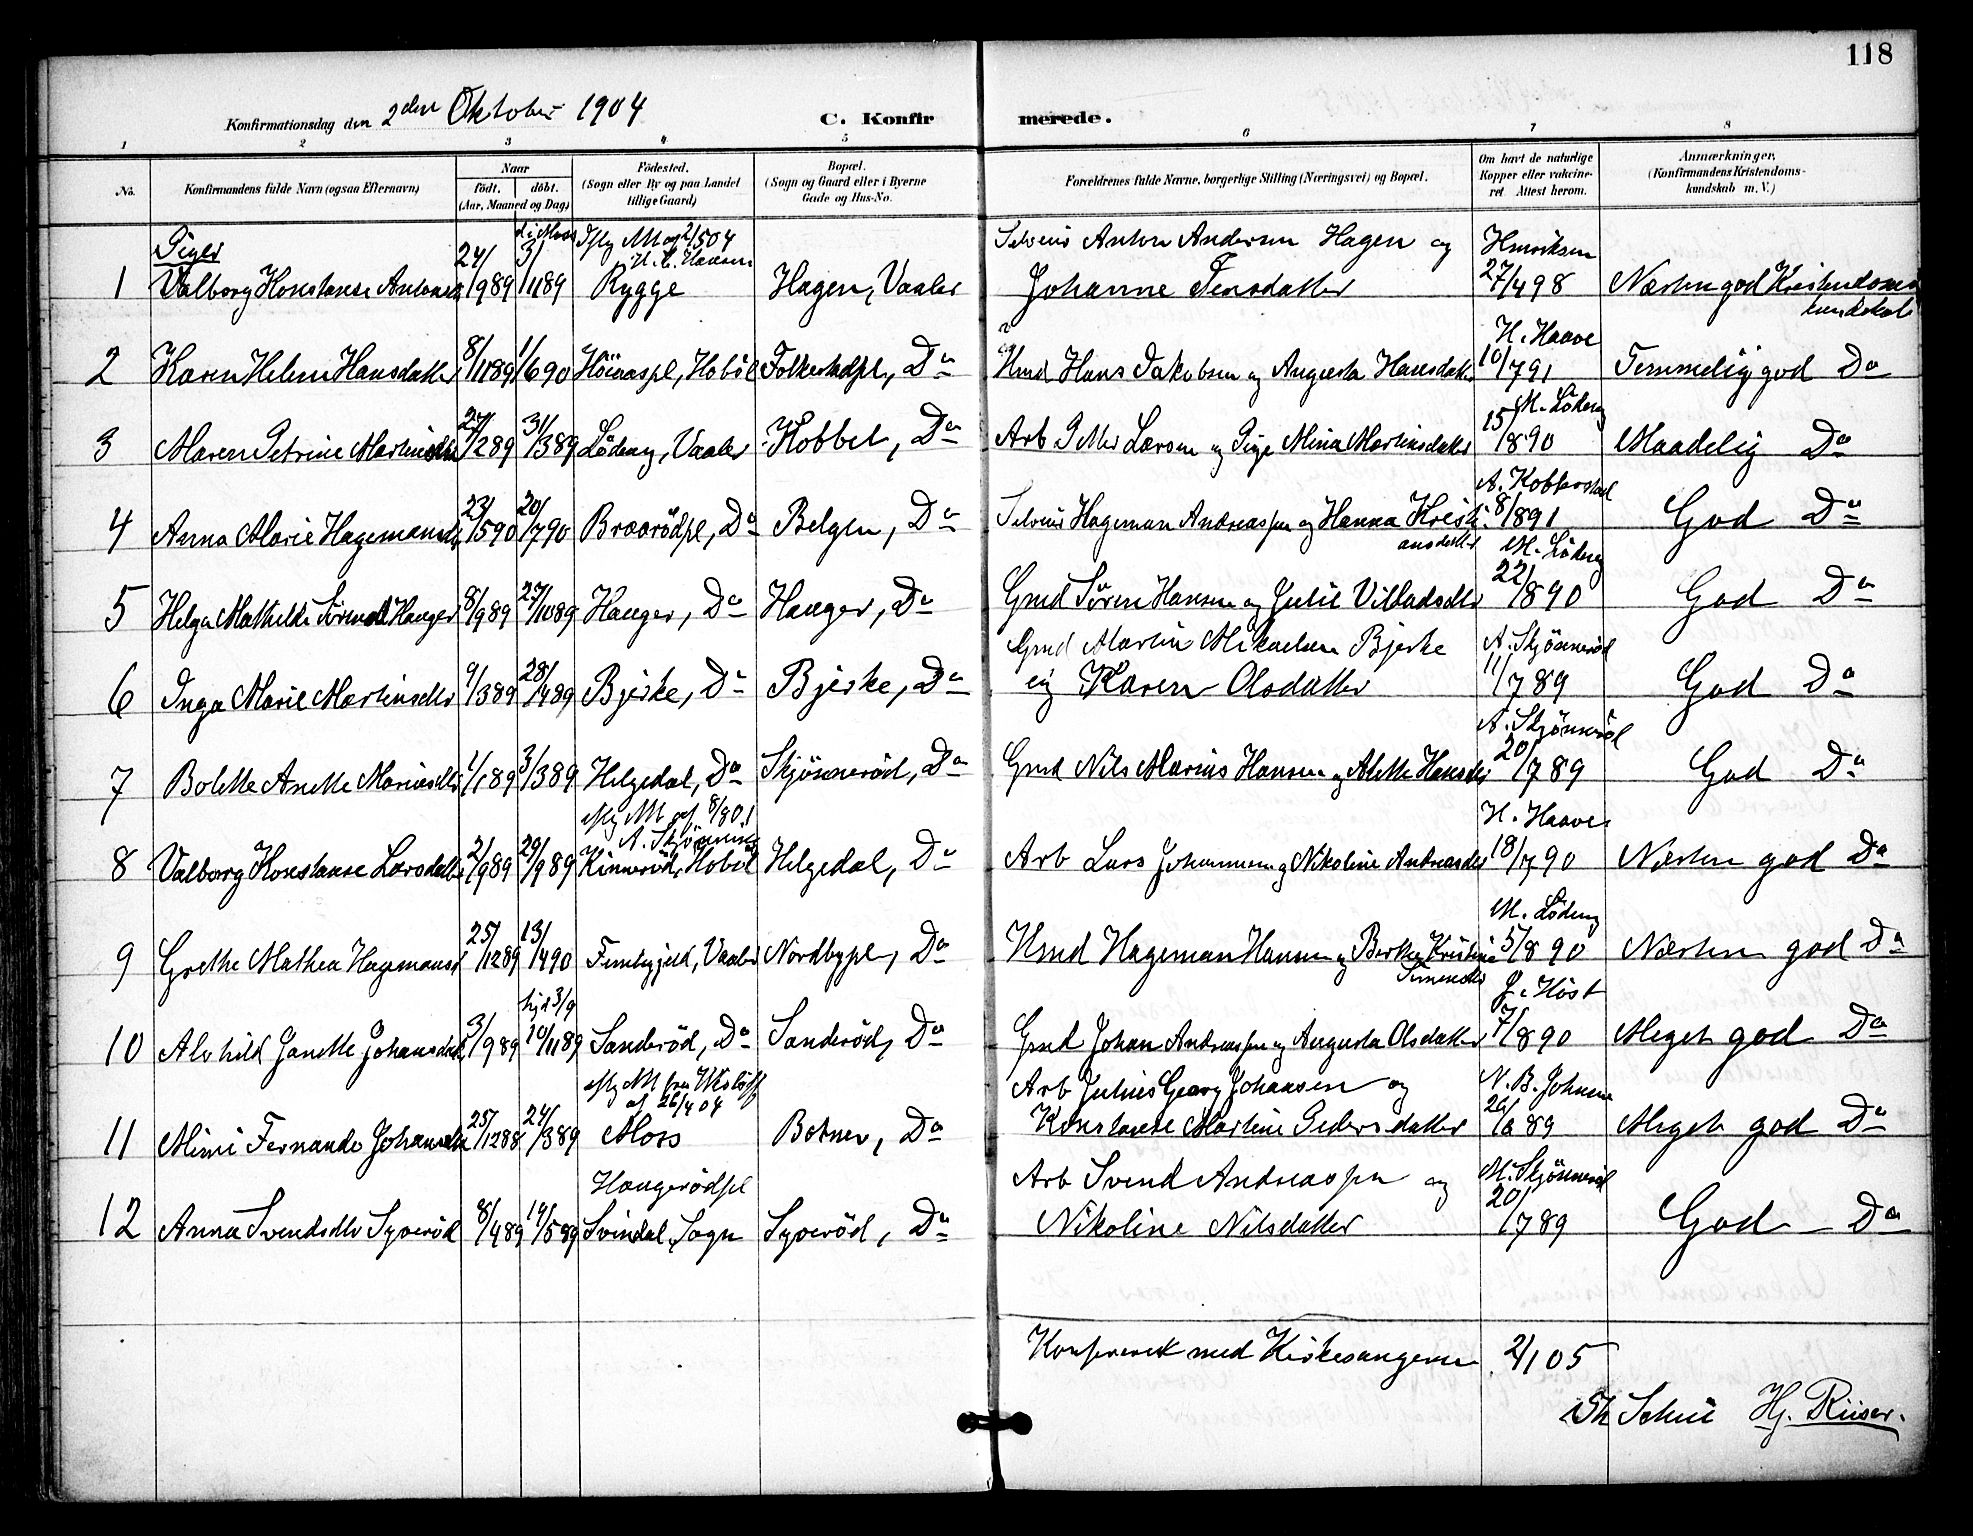 118
Konfirmationsdag den 2den Oktober 1904 C. Konfirmerede.
1 2 3 4 5 6 7 8
No. Konfirmandens fulde Navn (ogsaa Efternavn) Naar født. døbt. (Aar, Maaned og Dag) Födested. (Sogn eller By og paa Landet tillige Gaard) Bopæl. (Sogn og Gaard eller i Byerne Gade og Hus-No. Forældrenes fulde Navne, borgerlige Stilling (Næringsvei) og Bopæl. Om havt de naturlige Kopper eller vakcineret. Attest herom. Anmærkninger. (Konfirmandens Kristendomskundskab m. V.)
Piger
1 Valborg Konstanse 24/989 3/1189 Rygge Hagen, Vaaler Selveier Anton Andersen Hagen og Johanne Jensdatter Henriksen 27/498 Næsten god Kristendomskundskab
2 Karen Helene Hansdatter 8/1189 1/690 Hobøl Folkestadpl, Do Hans Jakobsen og Augusta Hansdatter H. Haave 10/791 Temmelig god Do
3 Maren Petrine 27/289 31/389 Lödeng, Vaaler Kobbel, Do Arb Larsen og Pige Mina Martinsdatter M. Lödeng 15/890 Maadelig Do
4 Anna Marie 23/590 20/790 Braarödpl, Do Belgen, Do Selveier Hageman Andreassen og Hanna Kristiansdatter A. Kobberstad 8/891 God Do
5 Helga Mathilde Hauger 8/989 27/1089 Hauger, Do Hauger, Do Gmd Søren Hansen og Julie M. Lödeng 22/890 God Do
6 Inga Marie Martinsdtr 9/389 28/489 Bjerke, Do Bjerke, Do Gmd Martin Mikaelsen Bjerke og Karen Olsdatter A. Skjönneröd 11/789 God Do
7 Bolette Anette Mariusdtr 1/189 3/389 Helgedal, Do Skjönneröd, Do Gmd Nils Marius Hansen og A. Skjönneröd 20/789 God Do
8 Valborg Konstanse Larsdatter 2/989 29/989 Kinneröd, Hobøl Helgedal, Do Arb Lars Johannesen og Nikoline H. Haave 18/790 Næsten god Do
9 Grethe Mathea 25/1289 13/490 Vaaler Nordbypl, Do Hageman Hansen og M. Lödeng 5/890 Næsten god Do
hjd 3/9
10 Alvhild Janette Johansdatter 3/989 10/1189 Sanderöd, Do Sanderöd, Do Gmd Johan Andreassen og Augusta Olsdatter J. Höst 7/890 Meget god Do
11 Mimi Fernanda 25/1288 24/389 Moss Botner, Do Arb Julius Georg Johansen og Konstanse Martine Pedersdatter N. B. Johnsen 26/889 Meget god Do
12 Anna Svendsdtr Syveröd 8/489 19/589 Haugerödpl Svindal Sogn Syveröd, Do Arb Svend Andreassen og Nikoline Nilsdatter M. Skjönneröd 20/789 God Do
Konfereret med Kirkesangeren 2/1 05
Hj. Riiser.